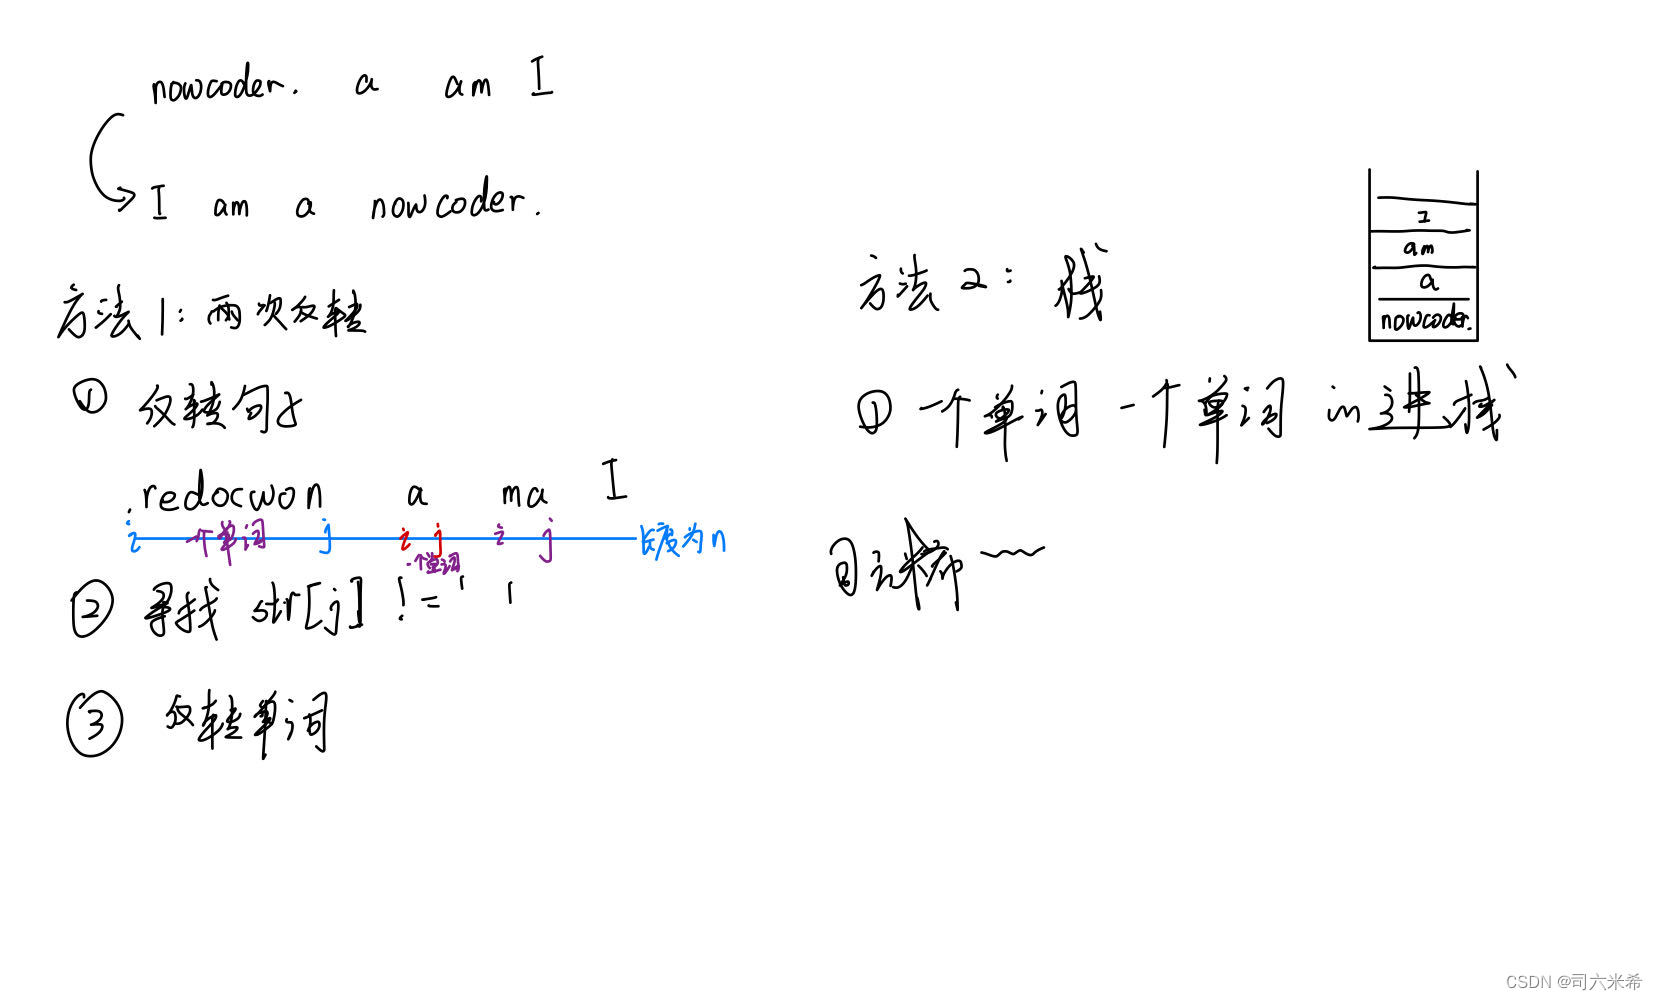 nowcoder. a am I
I am a nowcoder.
方法1:两次反转
① 反转句子
.redocwon a ma I
i 一个单词 j i j i j 长度为n
一个单词
② 寻找 str[j] != ' '
③ 反转单词
方法2: 栈
I
am
a
nowcoder.
① 一个单词 一个单词 in 进栈